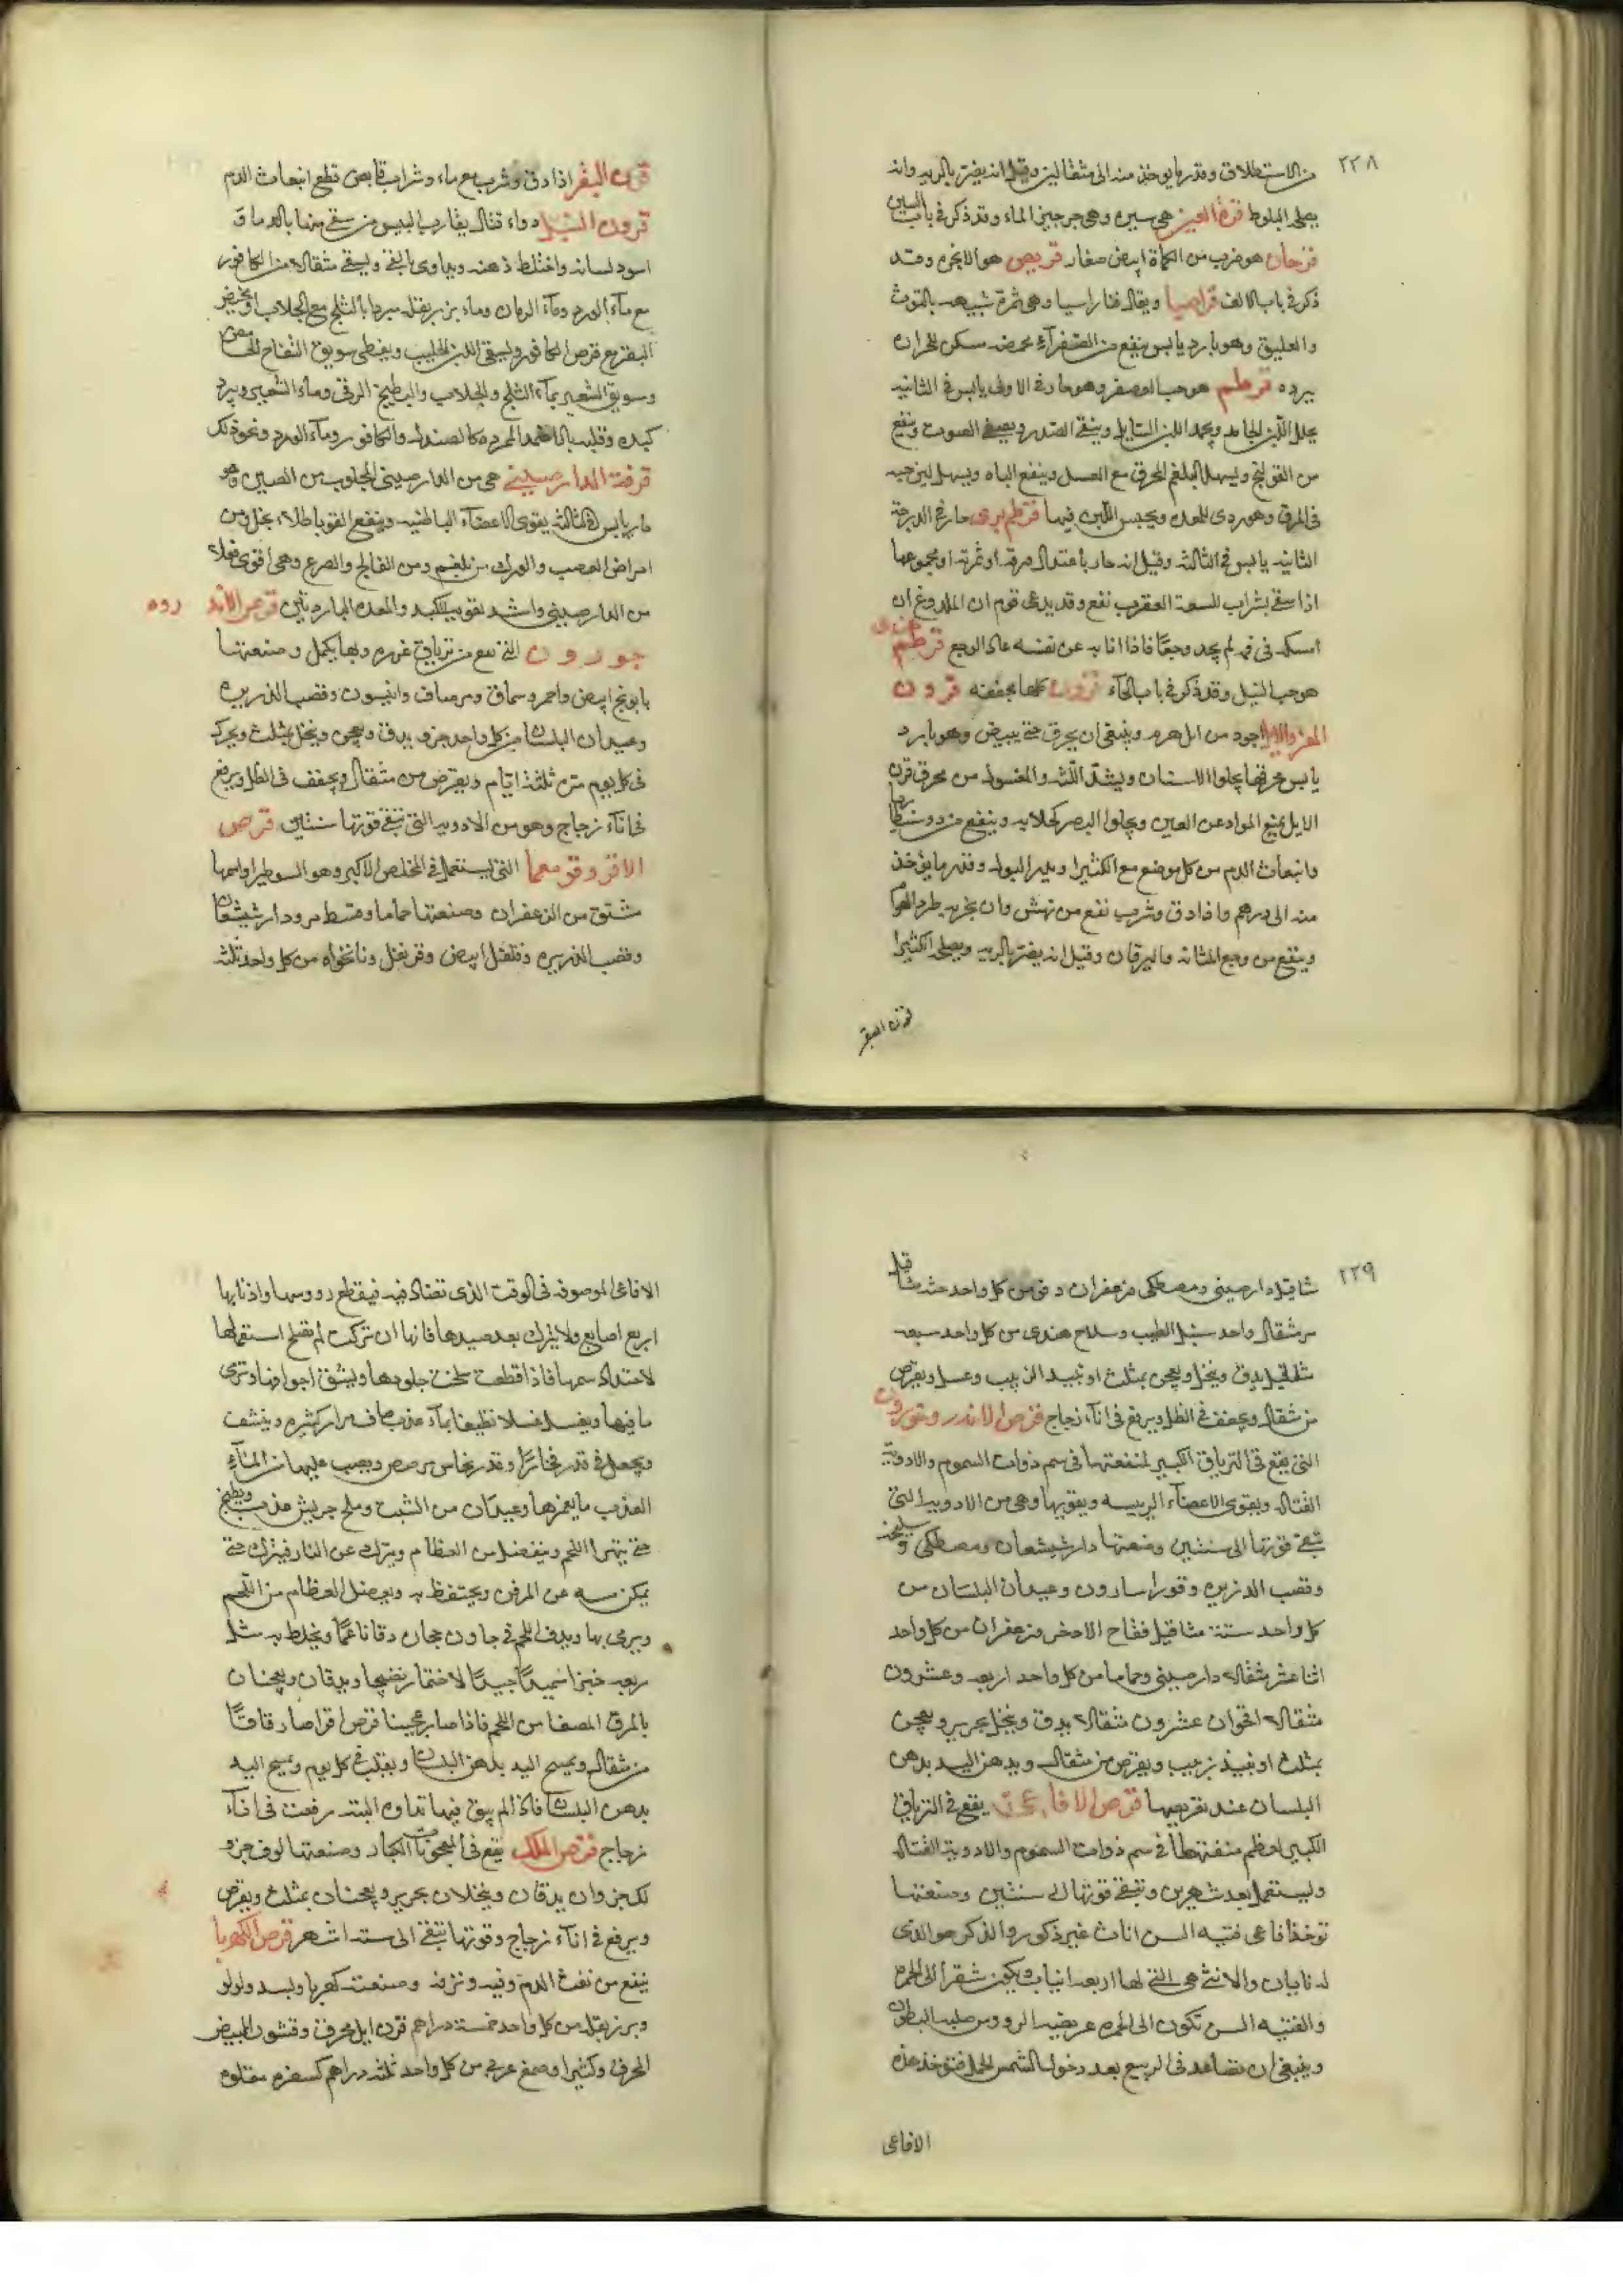 ٢٢٨
من الاستطلاق وقدر ما يوخذ منه الى مثقالين وقيل انه يضر بالريه وانه
يصلحه البلوط قرة العين هي سيره وهي جرجير الماء وقد ذكر في باب السين
قرحان هو ضرب من الكماة ابيض صغار قريص هو الانجره وقد
ذكر في باب الالف قراصيا ويقال قناراسيا وهي ثمرة شبيهه بالتوث
والعليق وهو بارد يابس ينفع من الصفرآء بحمضه سكن للحراره
ببرده قرطم هو حب العصفر وهو حار في الاولى يابس في الثانيه
يحلل اللبن الجامد ويجمد اللبن السايل وينقي الصدر ويصفي الصوت وينفع
من القولنج ويسهل البلغم المحرق مع العسل وينفع الباه ويسهل لين حبه
في المرق وهو ردي للمعده ويحبس اللبن فيها قرطم بري حار في الدرجة
الثانيه يابس في الثالثه وقيل انه حار باعتدال ورقه او ثمرته او مجموعها
اذا سقي بشراب للسعة العقرب نفع وقد يدعى قوم ان الملدوغ ان
امسكه في فمه لم يجد وجعًا فاذا ابانه عن نفسه عاد الوجع قرطم هندى
هو حب النيل وقد ذكر في باب الحآء قرون كلها مجففه قرون
المعز والايل اجوده من ايل هرم وينبغي ان يحرق حتى يبيض وهو بارد
يابس محرقها يجلوا الاسنان ويشدّ اللّثه والمغسول من محرق قرن
الايل يمنع المواد عن العين ويجلوا البصر كجلايه وينفع من دوسنطاريا
وانبعاث الدم من كل موضع مع الكثيرا ويدر البول وقدر ما يؤخذ
منه الى درهم واذا دق وشرب نفع من نهش وان بخر به طرد الهوآم
وينفع من وجع المثانه واليرقان وقيل انه يضر بالريه ويصلحه الكثيرا
قرن البقر
قرن البقر اذا دق وشرب مع ماء وشراب قابض قطع انبعاث الدم
قرون السنبل دواء قتال يقارب البيش من سقي منها بال دما و
اسود لسانه واختلط ذهنه ويداوى بالقي ويسقى مثقالا من الكافور
مع مآء الورد ومآء الرمان وماء بزر بقله مبردا بالثلج مع الجلاب او مخيض
البقر مع قرص الكافور ويسقى اللبن الحليب ويعطى سويق التفاح الحامض
وسويق الشعير بمآء الثلج والجلاب والبطيخ الرقي وماء الشعير ويبرد
كبده وقلبه بالاضمده المبرده كالصندل والكافور ومآء الورد ونحو ذلك
قرفة الدارصيني هي من الدارصيني المجلوب من الصين وهو
حار يابس في الثالثه يقوى الاعضآء الباطنيه وينفع القوبا طلاء بخل ومن
امراض العصب والورك من بلغم ومن الفالج والصرع وهي اقوى فعلا
من الدارصيني واشد تقويه للكبد والمعده الباردتين قرص الاند روه
جورون التي تقع من ترياق عزره وبها يكمل وصنعتها
بابونج ابيض واحمر وسماق ومرصاف وانيسون وقصب الذريره
وعيدان البلسان من كل واحد جزو يدق ويعجن وينخل بمثلث ويحرك
في كل يوم مرّه ثلثة ايّام ويقرّص من مثقال ويجفف في الظل ويرفع
في انآء زجاج وهو من الادويه التي تبقى قوتها سنتين قرص
الاقروقومعما التي تستعمل في المخلص الاكبر وهو السوطيرا واسمها
مشتق من الزعفران وصنعتها حماما وقسط مر ودارشيشعان
وقصب الذريره وفلفل ابيض وقرنفل ونانخواه من كل واحد ثلثه
٢٢٩
مثاقيل دارصيني ومصطكى وزعفران دق من كل واحد خمسة مثاقيل
مر مثقال واحد سنبل الطيب وسلاح هندى من كل واحد سبعه
مثاقيل يدق وينخل ويعجن بمثلث او نبيد الزبيب وعسل ويقرص
من مثقال ويجفف في الظل ويرفع في انآء زجاج قرص الاندر وخورون
التي يقع في الترياق الكبير لمنفعتها في سم ذوات السموم والادوية
القتاله ويقوى الاعضآء الرييسه ويقويها وهي من الادويه التي
تبقى قوتها الى سنتين وصنعتها دارشيشعان ومصطكى وسليخه
وقصب الذريره وقورا سارون وعيدان البلسان من
كل واحد ستة مثاقيل فقاح الاذخر وزعفران من كل واحد
اثنا عشر مثقاله دارصيني وحماما من كل واحد اربعه وعشرون
مثقاله اقحوان عشرون مثقالا يدق وينخل بحرير ويعجن
بمثلث او نبيذ زبيب ويقرص من مثقال ويدهن اليد بدهن
البلسان عند تقريصها قرص الافاعي يقع في الترياق
الكبير اعظم منفعتها في سم ذوات السموم والادوية القتاله
وليستعمل بعد شهرين وتبقى قوتها الى سنتين وصنعتها
توخذ افاعى فتيه السن اناث غير ذكور والذكر هو الذي
له نابان والانثى هي التي لها اربعه انياب ويكون شقرا الى الحمره
والفتيه السن تكون الى الحمره عريضه الرووس صلبه البطون
وينبغي ان تصاعد في الربيع بعد دخول الشمس الحمل فتوخذ هذه
الافاعى
الافاعى الموصوفه في الوقت الذي تصاد فيه فيقطع رووسها واذنابها
اربع اصابع ولا يترك بعد صيدها فانها ان تركت لم تصلح استعمالها
لاحتداد سمها فاذا قطعت سلخت جلودها ويشق اجوافها وترى
ما فيها ويغسل غسلا نظيفا بمآء عذب صاف مرار كثيره وينشف
ويجعل في قدر فخار او قدر نحاس مرصص ويصب عليها من المآء
العذب ما يغمرها وعيدان من الشبت وملح جريش عذب ويطبخ
حتى يتهرا اللحم وينفصل من العظام وينزل عن النار فيترك حتى
يمكن مسه عن المرق ويحتفظ به ويعزل العظام من اللحم
ويرمى بها ويدق اللحم في جاون حجاره دقا ناعمًا ويخلط به مثل
ربعه خبز سميد جيدًا لاختمار نضيجا ويدقان ويعجنان
بالمرق المصفا من اللحم فاذا صار عجينا قرص اقراصا رقاقًا
من مثقال ويمسح اليد بدهن البلسان ويقلب في كل يوم ويمسح اليد
بدهن البلسان فاذا لم يبق فيها نداوه البته رفعت في انآء
زجاج قرص الملك يقع في المعجونات الكبار وصنعتها لوف جزو
لك جزوان يدقان وينخلان بحرير ويعجنان بمثلث ويقرص
ويرفع في اناء زجاج وقوتها تبقى الى ستة اشهر قرص الكهربا
ينفع من نفث الدم وقيه ونزفه وصنعته كهربا وبسد ولولو
وبزر بقله من كل واحد خمسة دراهم قرن ايل محرق وقشور البيض
المحرق وكثيرا وصمغ عربي من كل واحد ثلثه دراهم كسفره مقلوه